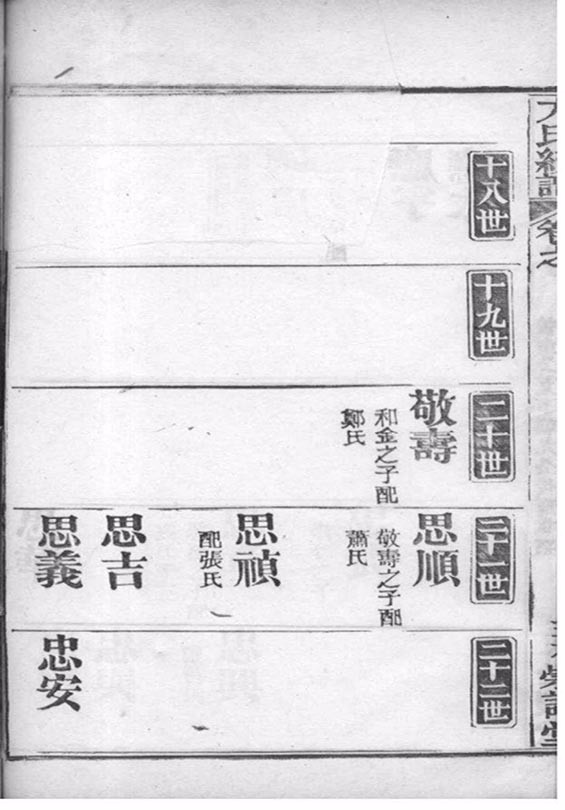 卷之
十八世
十九世
二十世
敬壽
和金之子配
鄭氏
二十一世
思順
敬壽之子配
蕭氏
思禎
配張氏
思吉
思義
二十二世
忠安